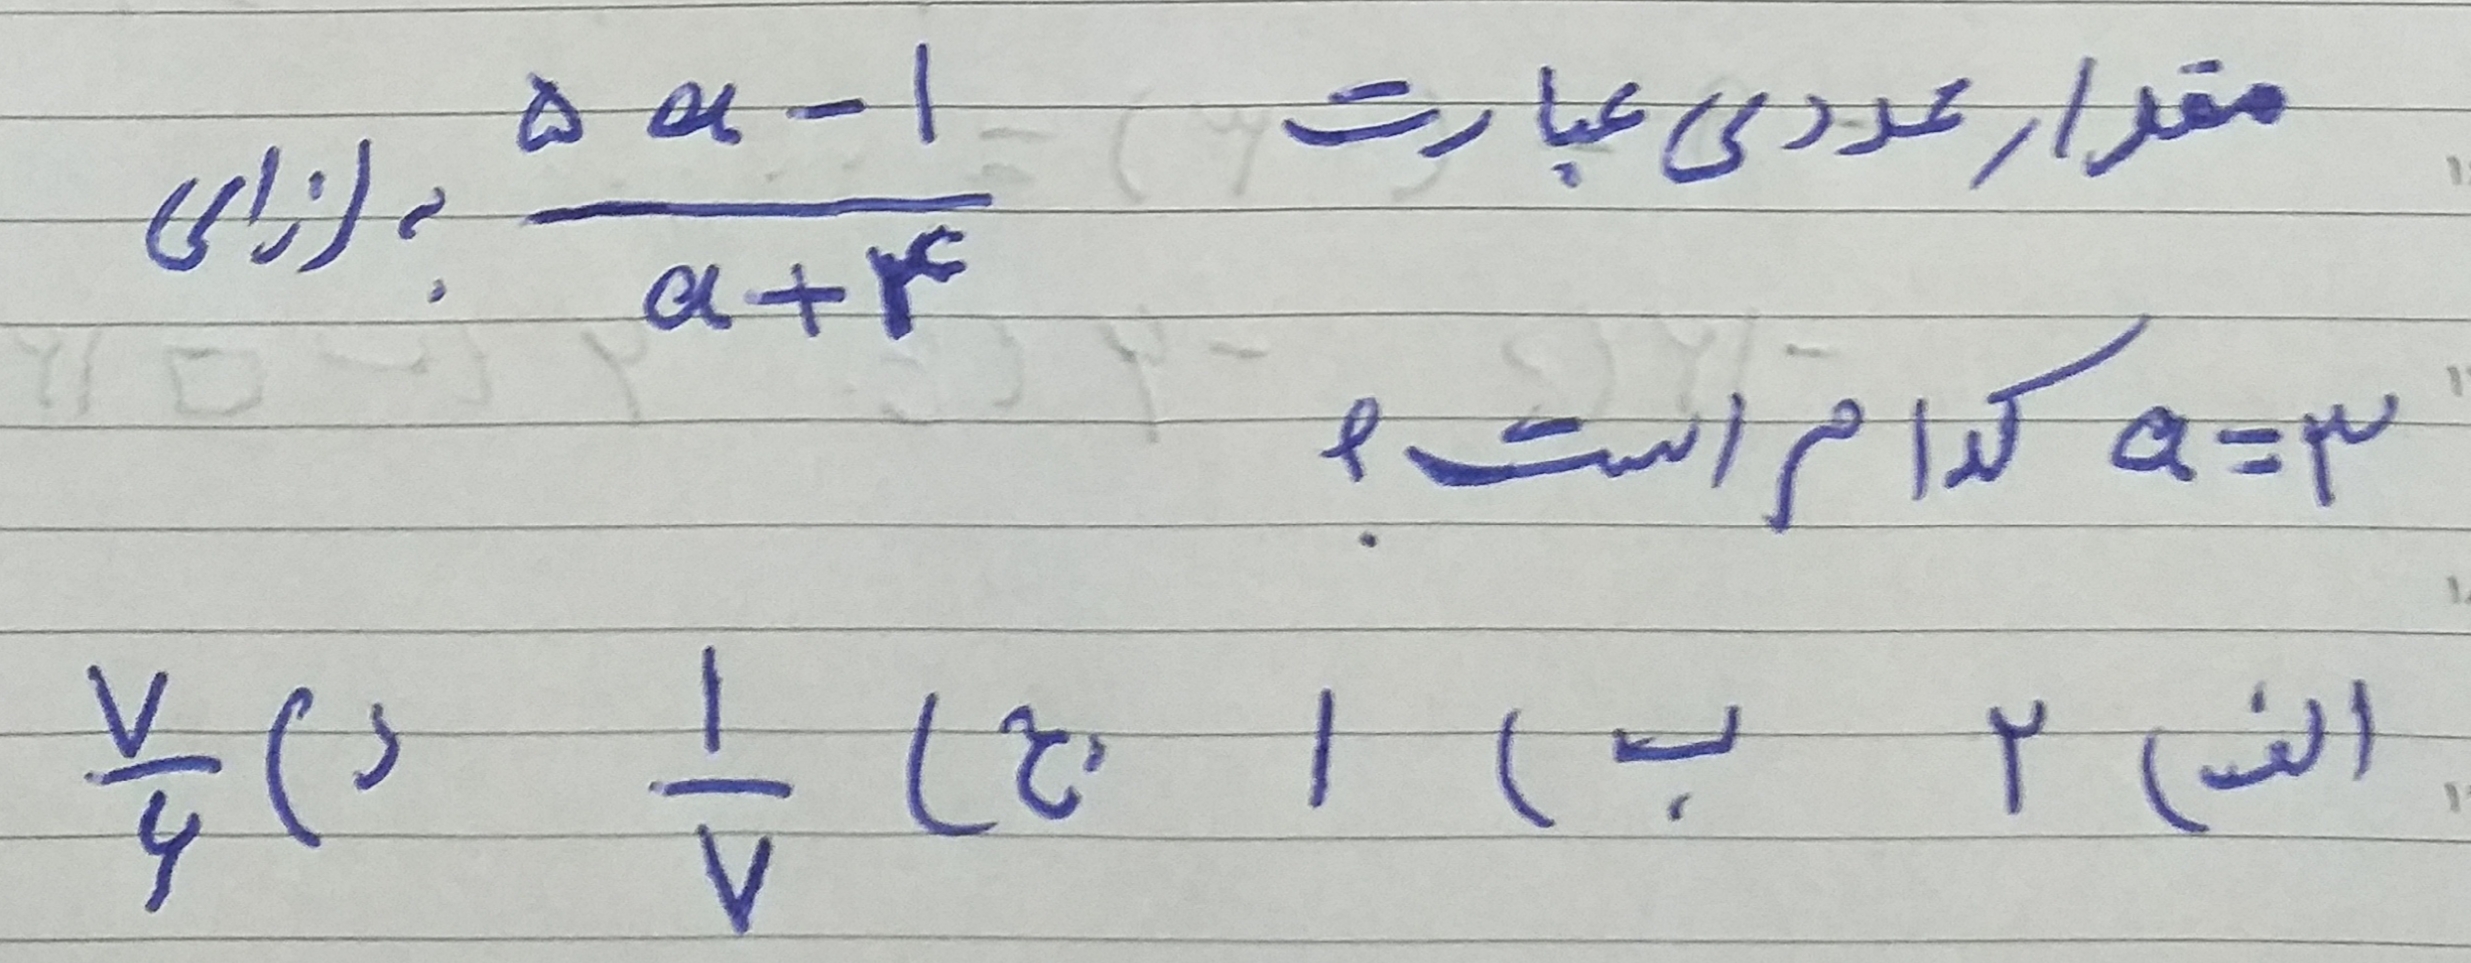 مقدار عددی عبارت ۵a-۱/a+۴ به ازای
a=۳ کدام است؟
الف) ۲ ب) ۱ ج) ۱/۷ د) ۷/۶